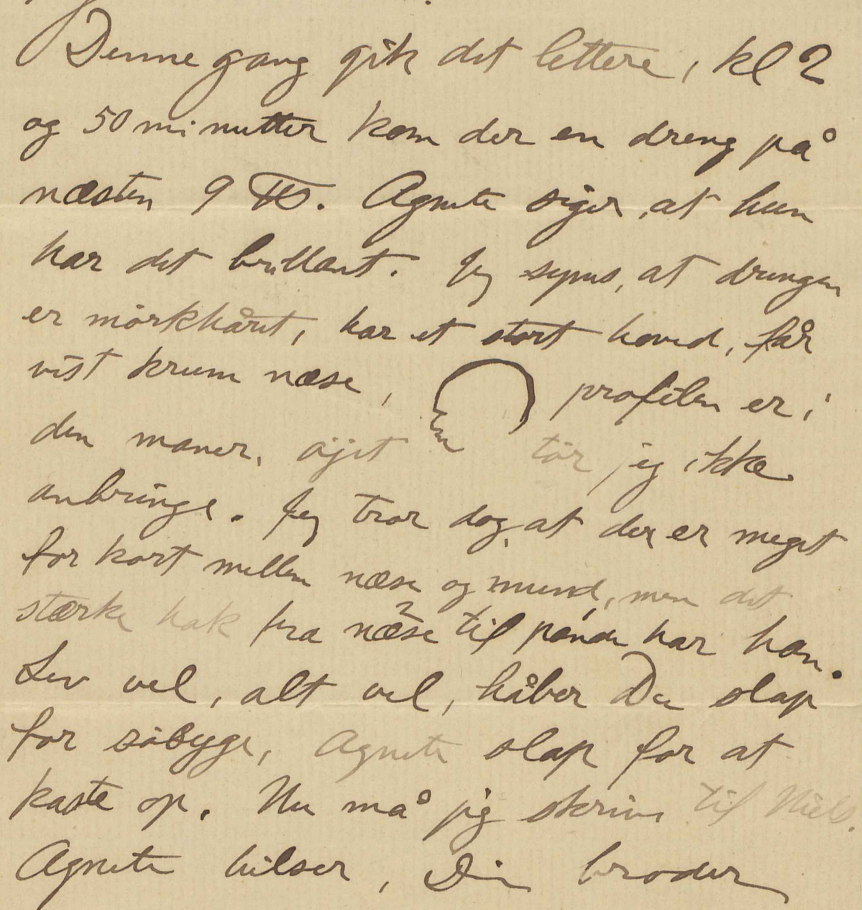 Denne gang gik det lettere, kl 2
og 50 minutter kom der en dreng på
næsten 9 ℔. Agnete siger, at hun
har det brillant. Jeg synes, at drengen
er mörkhåret, har et stort hoved, får
vist krum næse, profilen er i
den maner, öjet tör jeg ikke
anbringe. Jeg tror dog, at der er meget
for kort mellem næse og mund, men det
stærke hak fra næse til pande har han.
Lev vel, alt vel, håber Du slap
for søsyge, Agnete slap for at
kaste op. Nu må jeg skrive til Niels.
Agnete hilser, Din broder